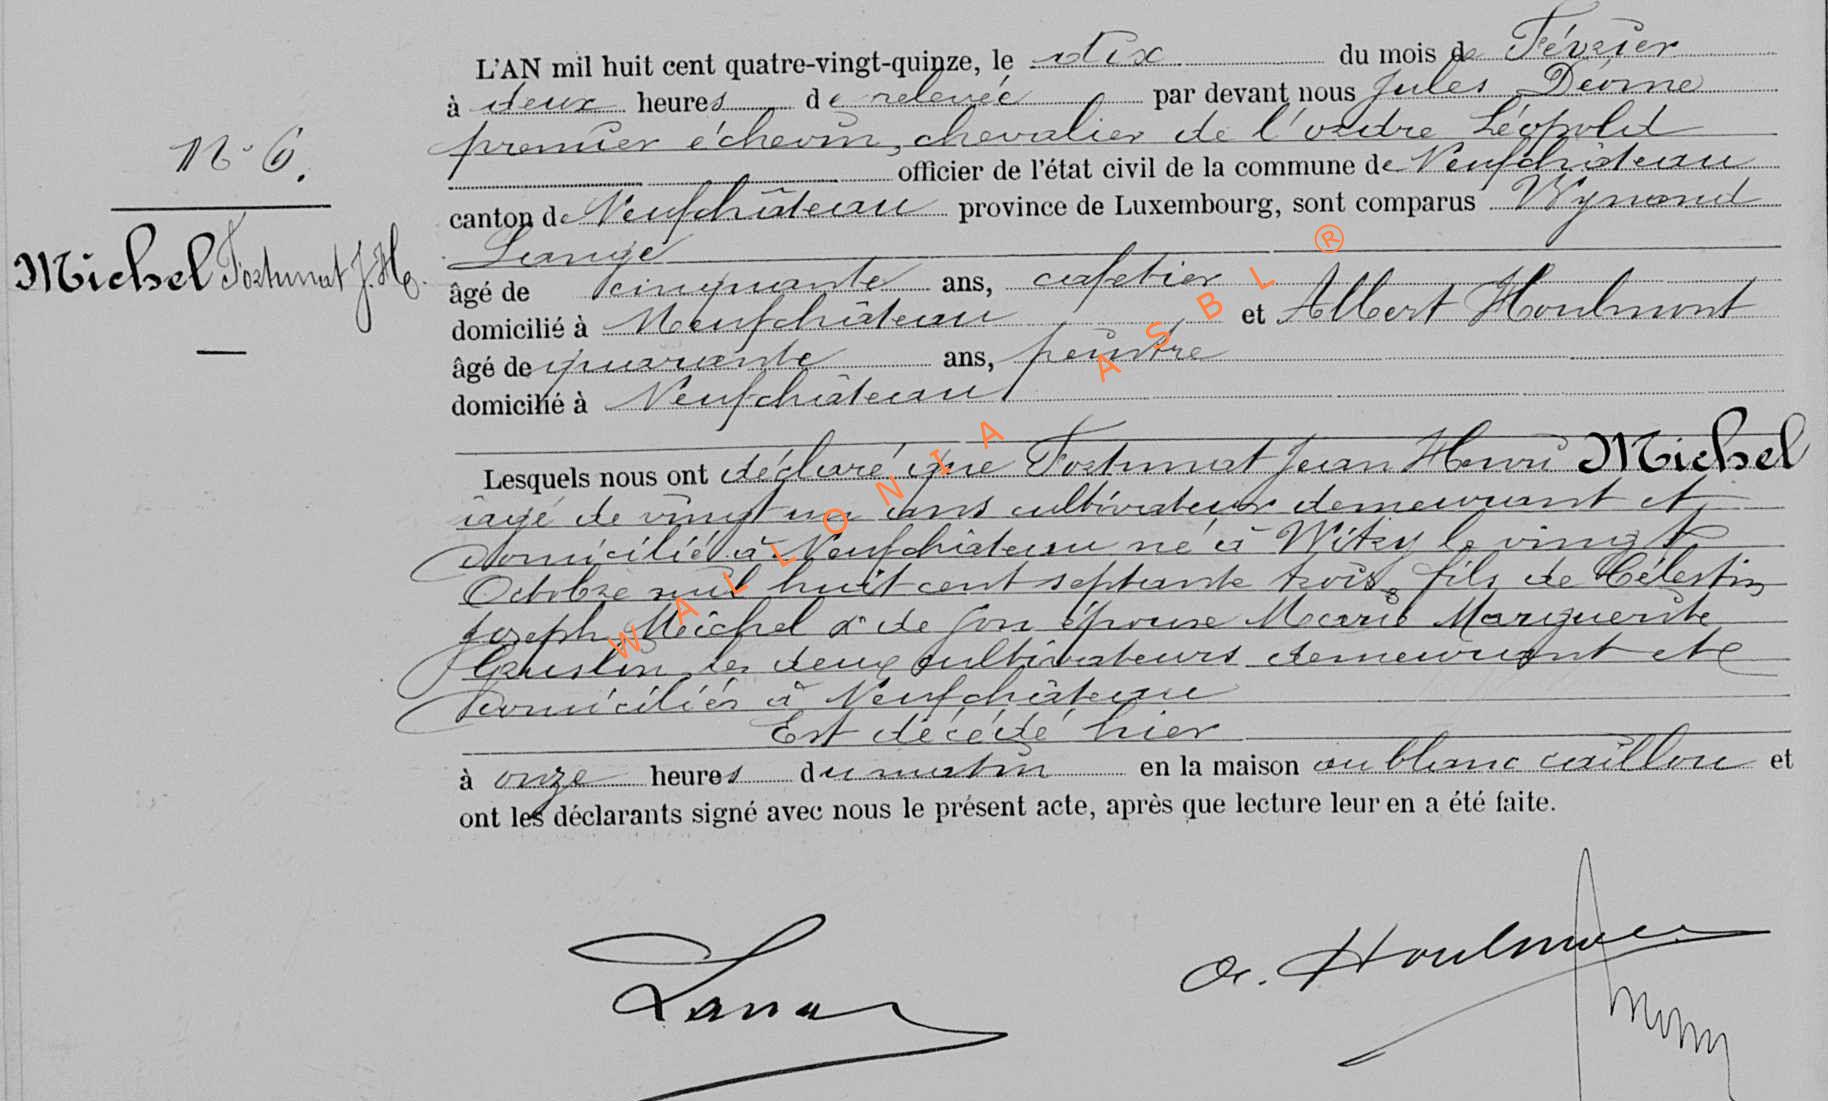 N° 6.
Michel Fortunat J. H.
L'AN mil huit cent quatre-vingt-quinze, le dix du mois de Février
à deux heures de relevée par devant nous Jules
premier échevin, chevalier de l'ordre Léopold
officier de l'état civil de la commune de Neufchâteau
canton de Neufchâteau province de Luxembourg, sont comparus Wynand
Lange
âgé de cinquante ans, cafetier
domicilié à Neufchâteau et Albert Houlmont
âgé de quarante ans, peintre
domicilié à Neufchâteau
Lesquels nous ont déclaré que Fortunat Jean Henri Michel
âgé de vingt un ans cultivateur demeurant et
domicilié à Neufchâteau né à Witry le vingt
Octobre mil huit cent septante trois, fils de Célestin
Joseph Michel & de son épouse Marie Marguerite
les deux cultivateurs demeurant et
domiciliés à Neufchâteau
Est décédé hier
à onze heures du matin en la maison au blanc caillou et
ont les déclarants signé avec nous le présent acte, après que lecture leur en a été faite.
A. Houlmont
WALLONIA ASBL ®